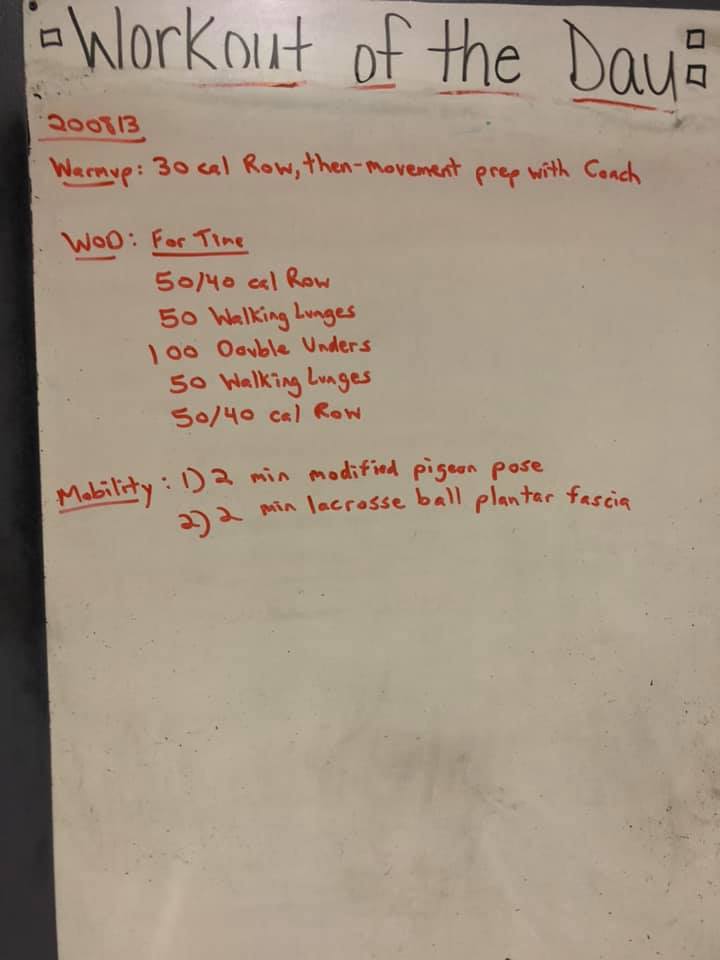 Workout of the Day:
200813
Warmup: 30 cal Row, then-movement prep with Coach
WOD: For Time
50/40 cal Row
50 Walking Lunges
100 Double Unders
50 Walking Lunges
50/40 cal Row
Mobility: 1) 2 min modified pigeon pose
2) 2 min lacrosse ball plantar fascia